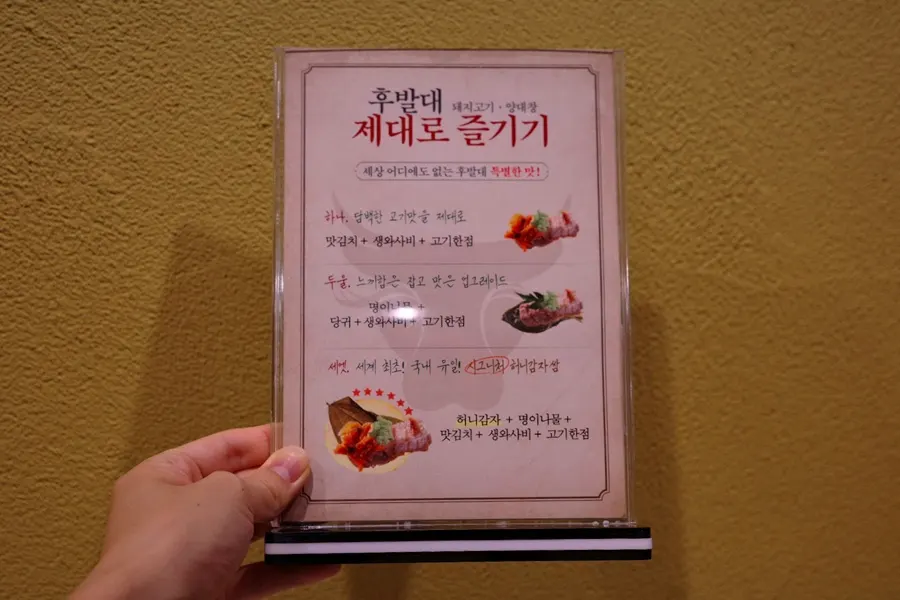 후발대 돼지고기 · 양대창
제대로 즐기기
세상 어디에도 없는 후발대 특별한 맛!
하나, 담백한 고기맛을 제대로
맛김치 + 생와사비 + 고기한점
두울, 느끼함은 잡고 맛은 업그레이드
명이나물 +
당귀 + 생와사비 + 고기한점
세엣, 세계 최초! 국내 유일! 시그니처 허니감자쌈
허니감자 + 명이나물 +
맛김치 + 생와사비 + 고기한점